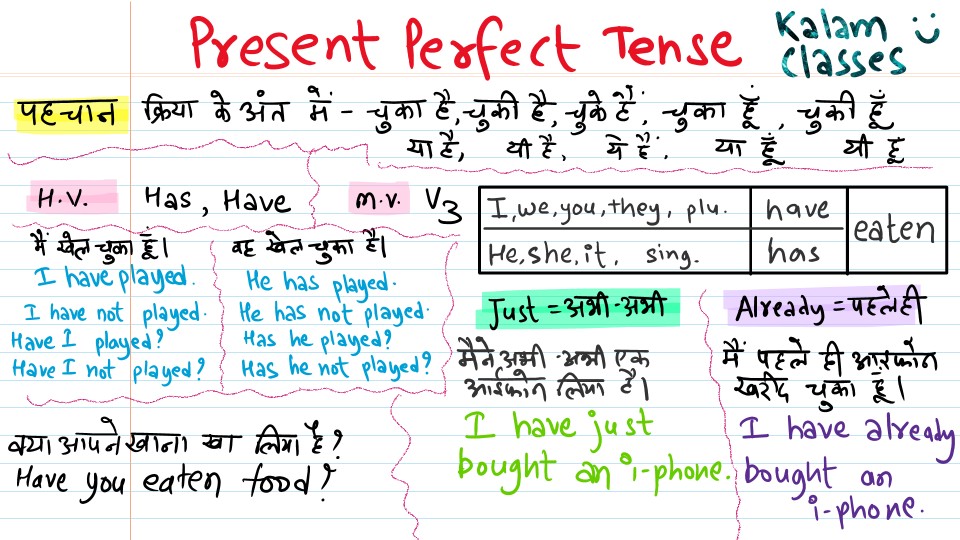 Present Perfect Tense
Kalam
Classes
पहचान क्रिया के अंत में - चुका है, चुकी है, चुके हैं, चुका हूँ, चुकी हूँ
या है, यी है, ये हैं, या हूँ यी हूं
H.V. Has, Have
M.V. V3
I, we, you, they, plu. have
He, she, it, sing. has
eaten
मैं खेल चुका हूं।
I have played.
I have not played.
Have I played?
Have I not played?
वह खेल चुका है।
He has played.
He has not played.
Has he played?
Has he not played?
क्या आपने खाना खा लिया है?
Have you eaten food?
Just = अभी-अभी
मैंने अभी-अभी एक
आईफोन लिया है।
I have just
bought an i-phone.
Already = पहले ही
मैं पहले ही आईफोन
खरीद चुका हूँ।
I have already
bought an
i-phone.